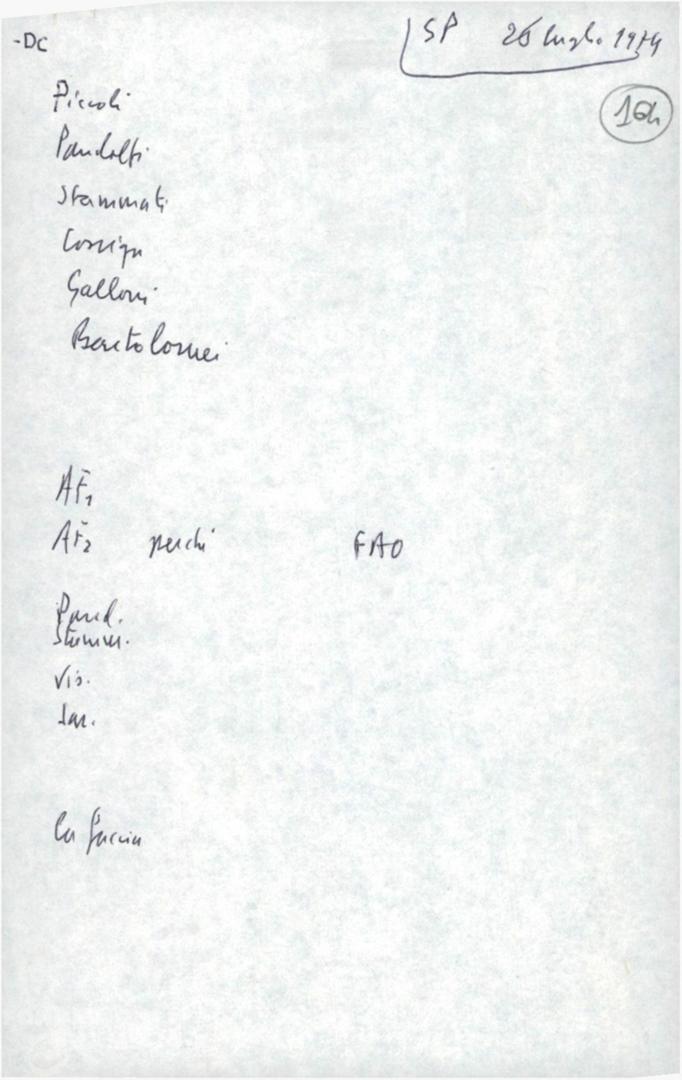 -DC
SP 26 luglio 1979
Piccoli
Pandolfi
Stammati
Cossiga
Galloni
Bartolomei
AF1
AF2 perchi FAO
Pand.
Stamm.
Vis.